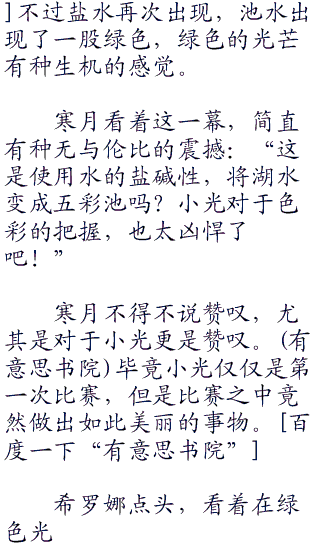 ]不过盐水再次出现，池水出
现了一股绿色，绿色的光芒
有种生机的感觉。
寒月看着这一幕，简直
有种无与伦比的震撼：“这
是使用水的盐碱性，将湖水
变成五彩池吗？小光对于色
彩的把握，也太凶悍了
吧！”
寒月不得不说赞叹，尤
其是对于小光更是赞叹。(有
意思书院)毕竟小光仅仅是第
一次比赛，但是比赛之中竟
然做出如此美丽的事物。[百
度一下“有意思书院”]
希罗娜点头，看着在绿
色光